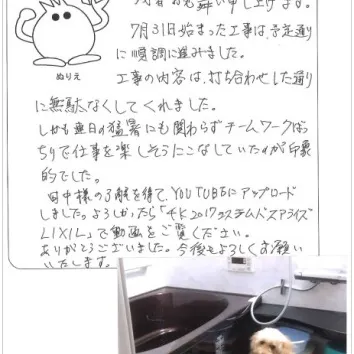 お見舞い申し上げます。
7月31日始まった工事は、予定通り
に順調に進みました。
ぬりえ
工事の内容は、打ち合わせした通り
に無駄なくしてくれました。
しかも連日の猛暑にも関わらずチームワークばっ
ちりで仕事を楽しそうにこなしていたのが印象
的でした。
田中様の了解を得て、YOUTUBEにアップロード
しました。よろしかったら「4K2017
LIXIL」で動画をご覧ください。
ありがとうございました。今後もよろしくお願い
いたします。